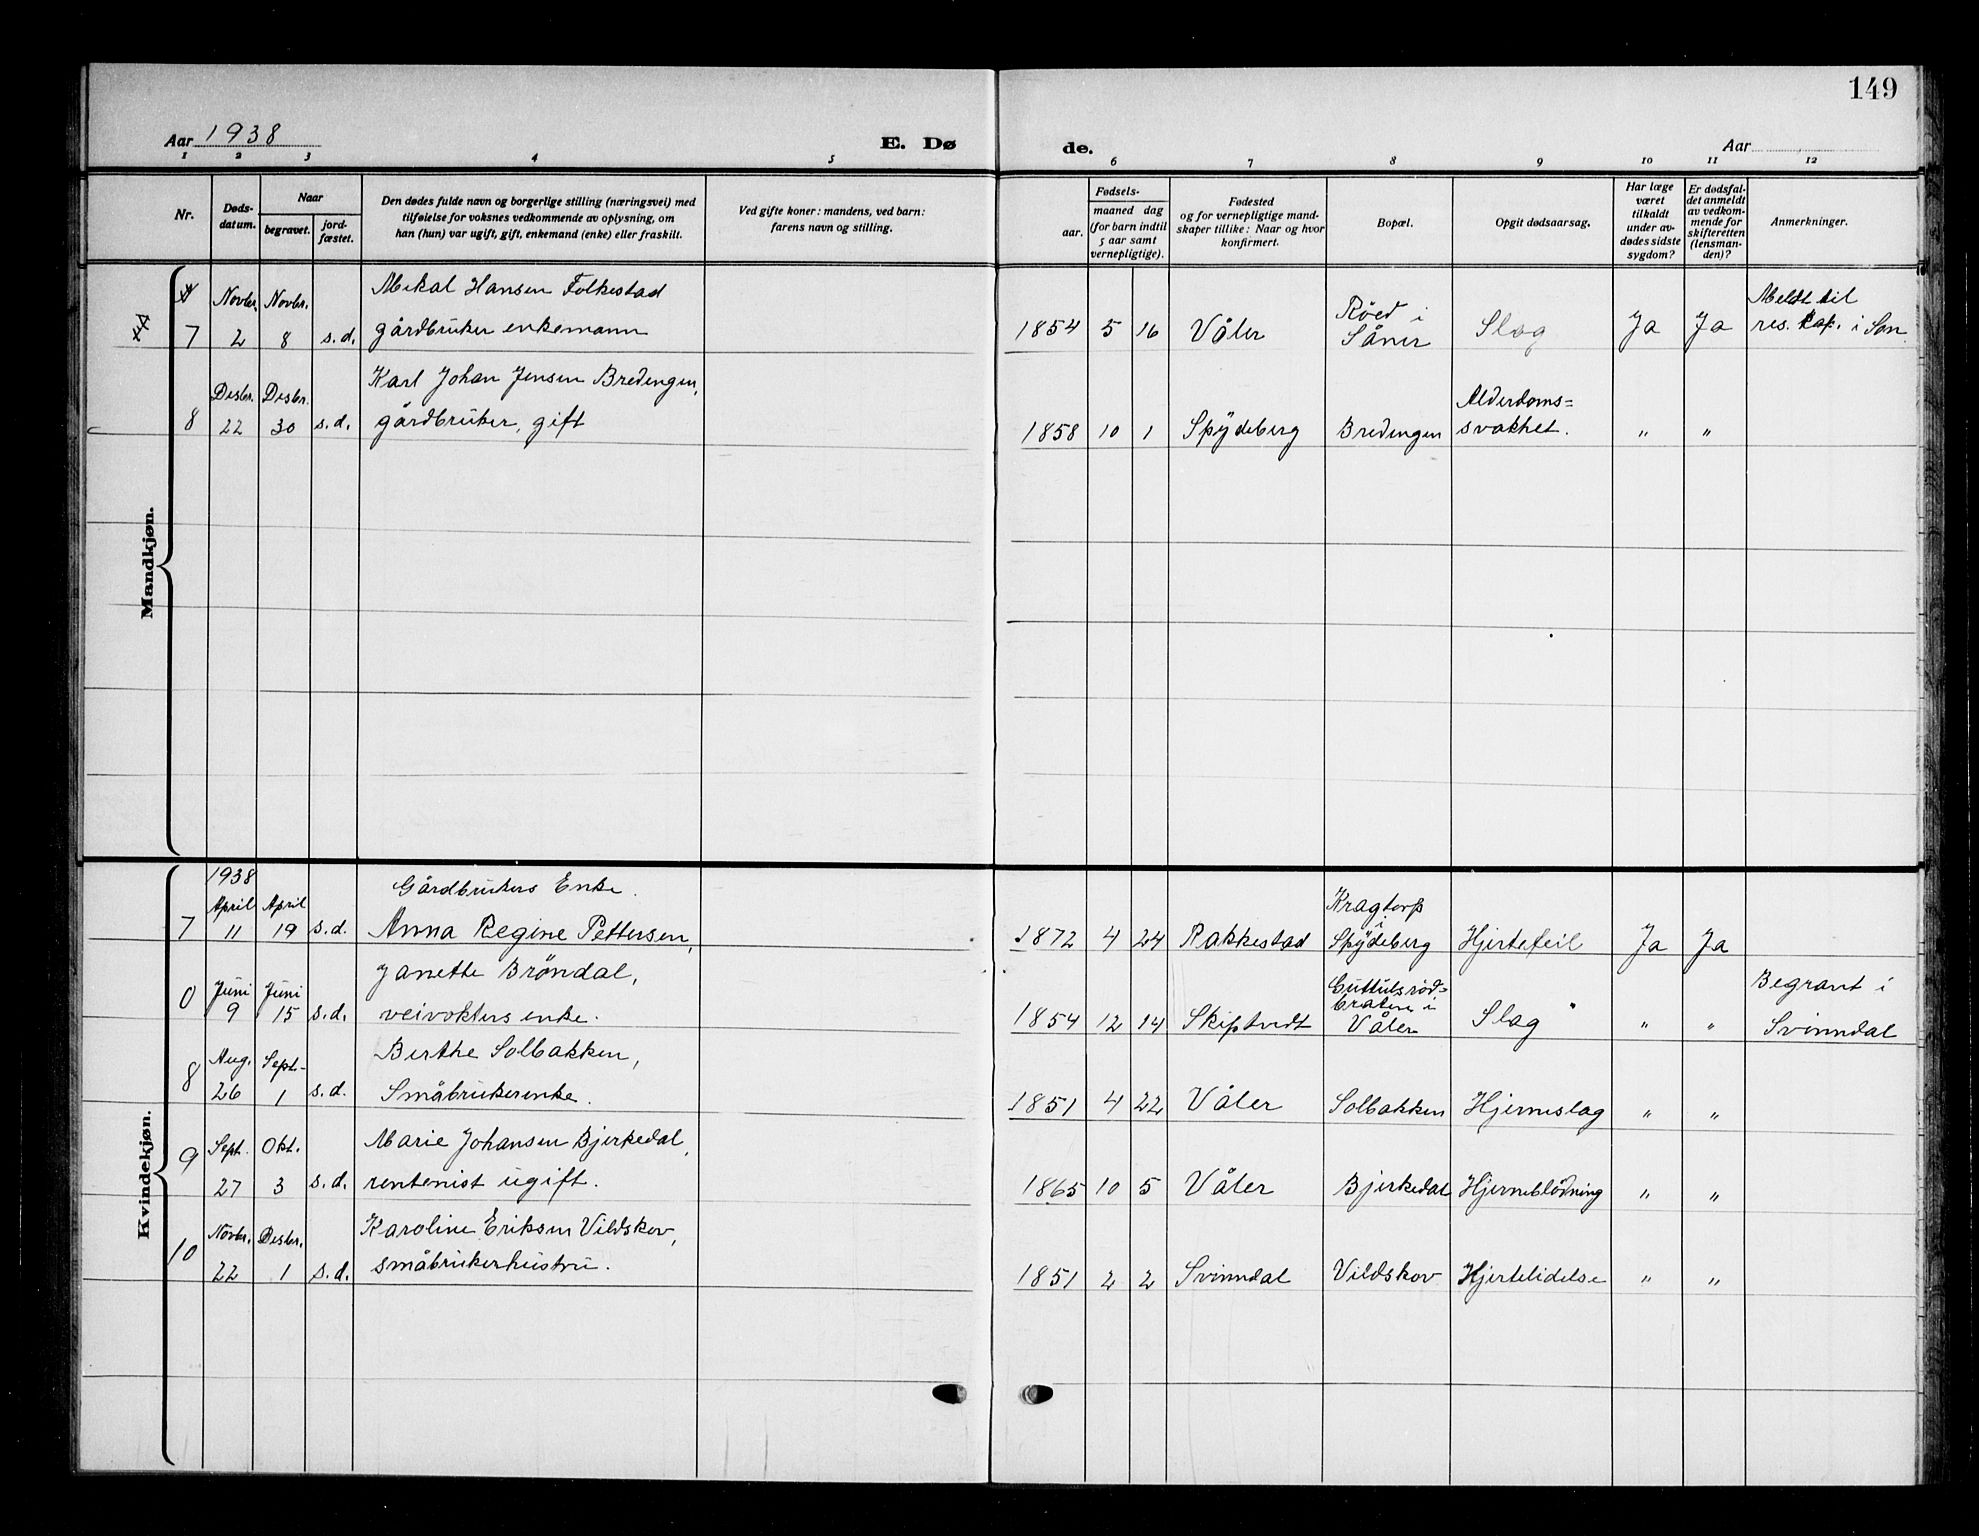 149
Aar 1938
E. Dø
de.
Aar
1 2 3 4 5
6 7 8 9 10 11 12
Nr.
Døds-
datum.
Naar
begravet.
jord-
fæstet.
Den dødes fulde navn og borgerlige stilling (næringsvei) med
tilføielse for voksnes vedkommende av oplysning, om
han (hun) var ugift, gift, enkemand (enke) eller fraskilt.
Ved gifte koner: mandens, ved barn:
farens navn og stilling.
Fødsels-
aar.
maaned dag
(for barn indtil
5 aar samt
vernepligtige).
Fødested
og for vernepligtige mand-
skaper tillike: Naar og hvor
konfirmert.
Bopæl.
Opgit dødsaarsag.
Har læge
været
tilkaldt
under av-
dødes sidste
sygdom?
Er dødsfal-
det anmeldt
av vedkom-
mende for
skifteretten
(lensman-
den)?
Anmerkninger.
Mandkjøn.
Novbr. Novbr. Mekal Hansen Folkestad
7 2 8 s.d. gårdbruker enkemann
Röed i
1854 5 16 Våler Såner Slag Ja Ja
Meldt til
res. kap. i Son
Desbr. Desbr. Karl Johan Jensen Bredengen,
8 22 30 s.d. gårdbruker, gift
Alderdoms=
1858 10 1 Spÿdeberg Bredengen svakhet. " "
Kvindekjøn.
1938
April April Gårdbrukers Enke.
7 11 19 s.d. Anna Regine Pettersen,
Kragtorp
i
1872 4 24 Rakkestad Spÿdeberg Hjertefeil Ja Ja
Juni Juni Janette Bröndal,
0 9 15 s.d. veivokters enke.
Guttulsröd=
braten i
1854 12 14 Skiptvedt Våler Slag " "
Begravet i
Svinndal
Aug. Sept. Berthe Solbakken,
8 26 1 s.d. Småbrukerenke.
1851 4 22 Våler Solbakken Hjerneslag " "
Sept. Okt. Marie Johansen Bjerkedal,
9 27 3 s.d. rentenist ugift.
1865 10 5 Våler Bjerkedal Hjerneblödning " "
Novbr. Desbr. Karoline Eriksen Vildskov,
10 22 1 s.d. småbrukerhustru.
1851 2 2 Svinndal Vildskov Hjertelidelse " "